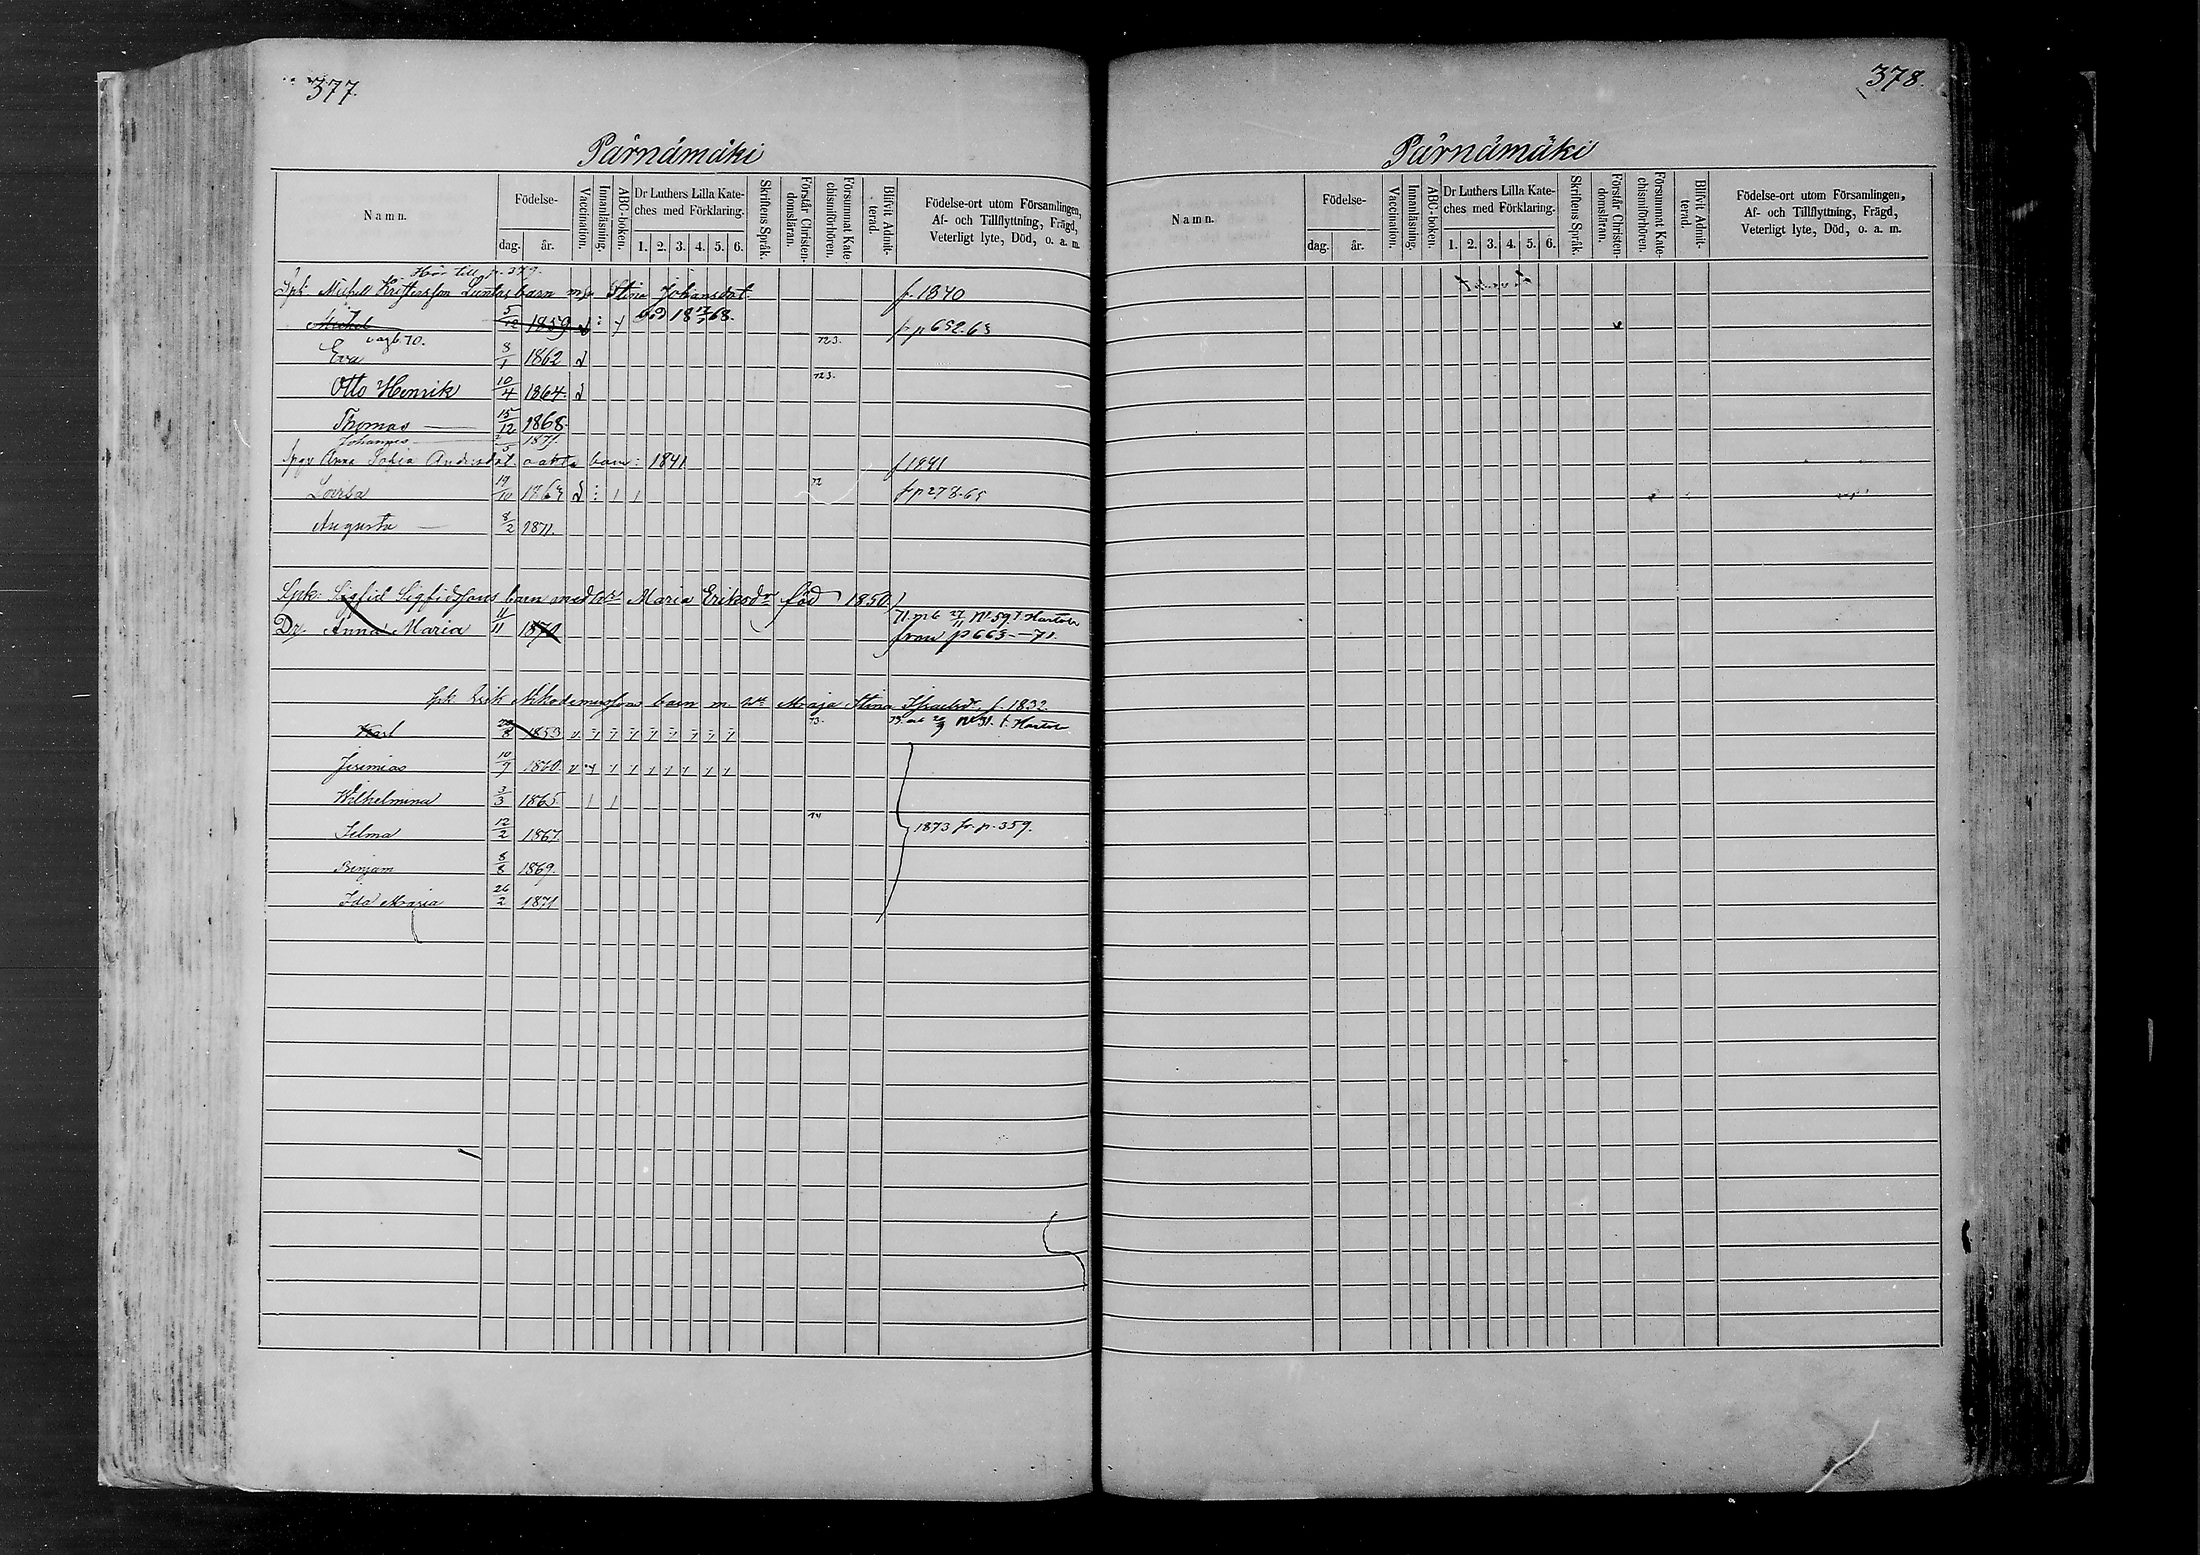 377.
Pärnämäki
Namn.
Födelse-
dag.
år.
Vaccination.
Innanläsning.
ABC-boken.
Dr Luthers Lilla Kate-
ches med Förklaring.
1. 2. 3. 4. 5. 6.
Skriftens Språk.
Förstår Christen-
domsläran.
Försummat Kate-
chismiförhören.
Blifvit Admit-
terad.
Födelse-ort utom Församlingen,
Af- och Tillflyttning, Frägd,
Veterligt lyte, Död, o. a. m.
Hör till p. 379.
Michel barn Stina Johansdot. f. 1840
Michel 5/12 1859 död 18 68. fr p 652.63
Eva 8/1 1862 723.
Otto Henrik 10/4 1864. 723.
Thomas 15/12 1868.
Johannes 2/5 1871.
Anna Sofia Andersdot. oäkta barn: 1841 f 1841
Lovisa 19/10 1863 72 fr p 278-65
Augusta 8/2 1871.
Spk. Sigfid Sigfidssons barn med Maria Eriksdr född 1850
71 27/11 No 59 t. Hartola
Dr. Anna Maria 11/11 1870 från p 663--71.
Spk Erik Nikodemussons barn m. Maja Stina f. 1832.
Karl 8 1853 73. No 31. t. Hartola
Jeremias 10/9 1860.
Wilhelmina 3/3 1865.
Selma 12/2 1867. 1873 fr. p. 359.
Benjam 8/8 1869.
Ida Maria 26/2 1871
378.
Pärnämäki
Namn.
Födelse-
dag.
år.
Vaccination.
Innanläsning.
ABC-boken.
Dr Luthers Lilla Kate-
ches med Förklaring.
1. 2. 3. 4. 5. 6.
Skriftens Språk.
Förstår Christen-
domsläran.
Försummat Kate-
chismiförhören.
Blifvit Admit-
terad.
Födelse-ort utom Församlingen,
Af- och Tillflyttning, Frägd,
Veterligt lyte, Död, o. a. m.